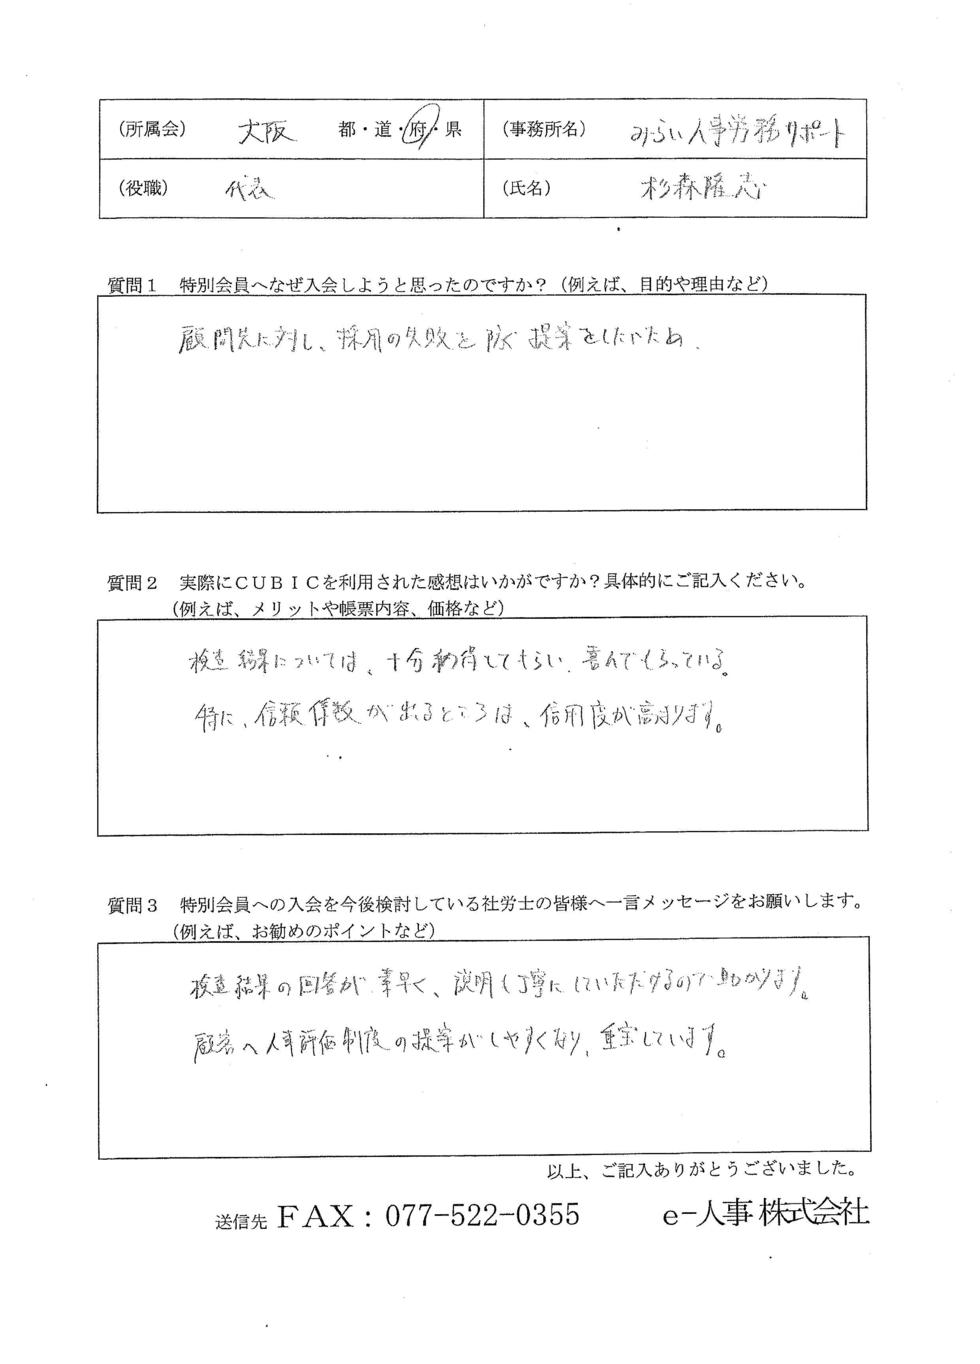 (所属会) 大阪 都・道・府・県 (事務所名) みらい人事労務サポート
(役職) 代表 (氏名) 杉森隆志
質問1 特別会員へなぜ入会しようと思ったのですか?(例えば、目的や理由など)
顧問先に対し、採用の失敗を防ぐ提案をしたいため.
質問2 実際にCUBICを利用された感想はいかがですか?具体的にご記入ください。
(例えば、メリットや帳票内容、価格など)
検査結果については、十分納得してもらい、喜んでもらっている。
特に、信頼係数が出るところは、信用度が高まります。
質問3 特別会員への入会を今後検討している社労士の皆様へ一言メッセージをお願いします。
(例えば、お勧めのポイントなど)
検査結果の回答が素早く、説明も丁寧にしていただけるので助かります。
顧客へ人事評価制度の提案がしやすくなり、重宝しています。
以上、ご記入ありがとうございました。
送信先 FAX:077-522-0355 e-人事株式会社